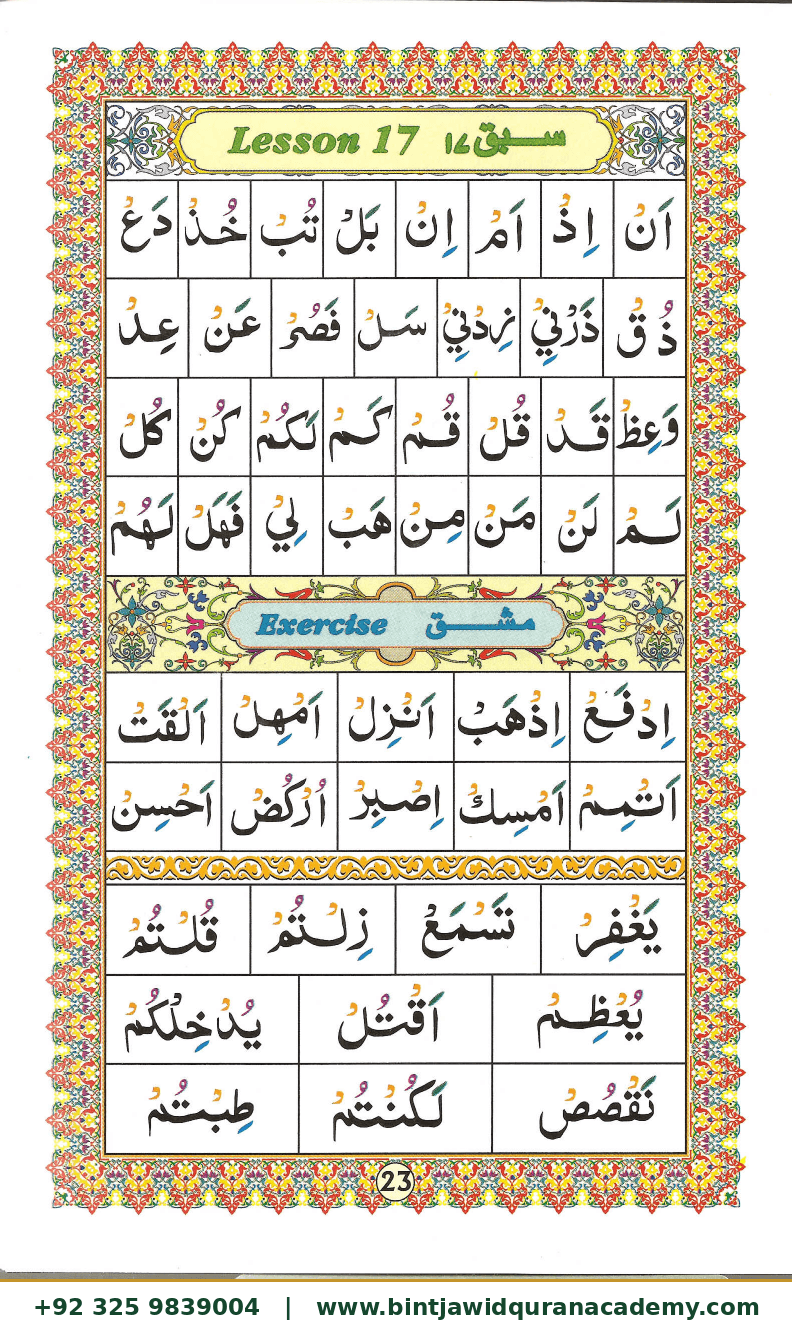 Lesson 17 سبق ١٧
اَنْ اِذْ اَمْ اِنْ بَلْ تُبْ خُذْ دَعْ
ذُقْ ذَرْنِيْ زِدْنِيْ سَلْ فَصُرْ عَنْ عِدْ
وَعِظْ قَدْ قُلْ قُمْ كَمْ لَكُمْ كُنْ كُلْ
لَمْ لَنْ مَنْ مِنْ هَبْ لِيْ فَهَلْ لَهُمْ
Exercise مشق
اِدْفَعْ اِذْهَبْ اَنْزِلْ اَمْهِلْ اَلْقَتْ
اَتْمِمْ اَمْسِكْ اِصْبِرْ اُرْكُضْ اَحْسِنْ
يَغْفِرْ تَسْمَعْ زِلْتُمْ قُلْتُمْ
يُعْظِمْ اَقْتُلْ يُدْخِلْكُمْ
نَقْصُصْ لَكُنْتُمْ طِبْتُمْ
23
+92 325 9839004 | www.bintjawidquranacademy.com